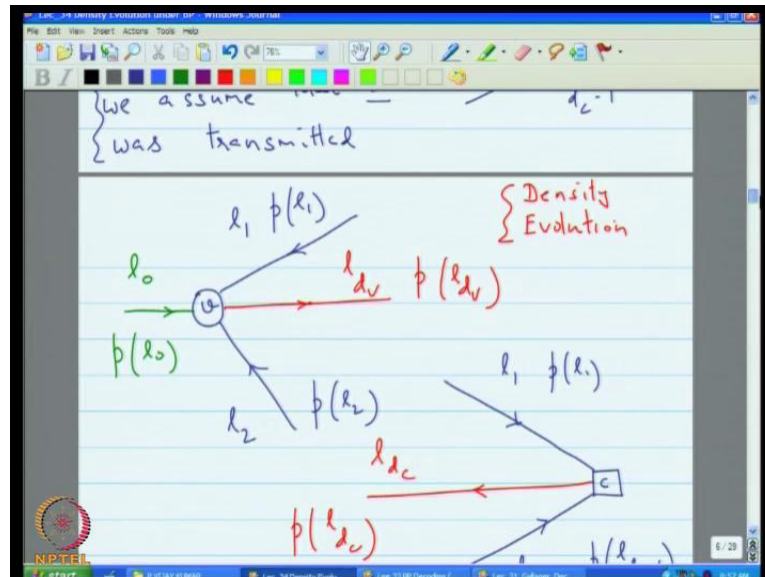 Lec_34 Density Evolution under BP - Windows Journal
File Edit View Insert Actions Tools Help
76%
B I
we assume
d_c-1
was transmitted
Density
Evolution
l_1 p(l_1)
l_0
l_{d_v} p(l_{d_v})
v
p(l_0)
l_2 p(l_2)
l_1 p(l_1)
l_{d_c}
c
p(l_{d_c})
NPTEL
6/29
start